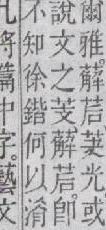 爾雅。薢茩英光。或
說文之芰。薢茩。卽
不知徐鍇何以淆
將篇中字。藝文